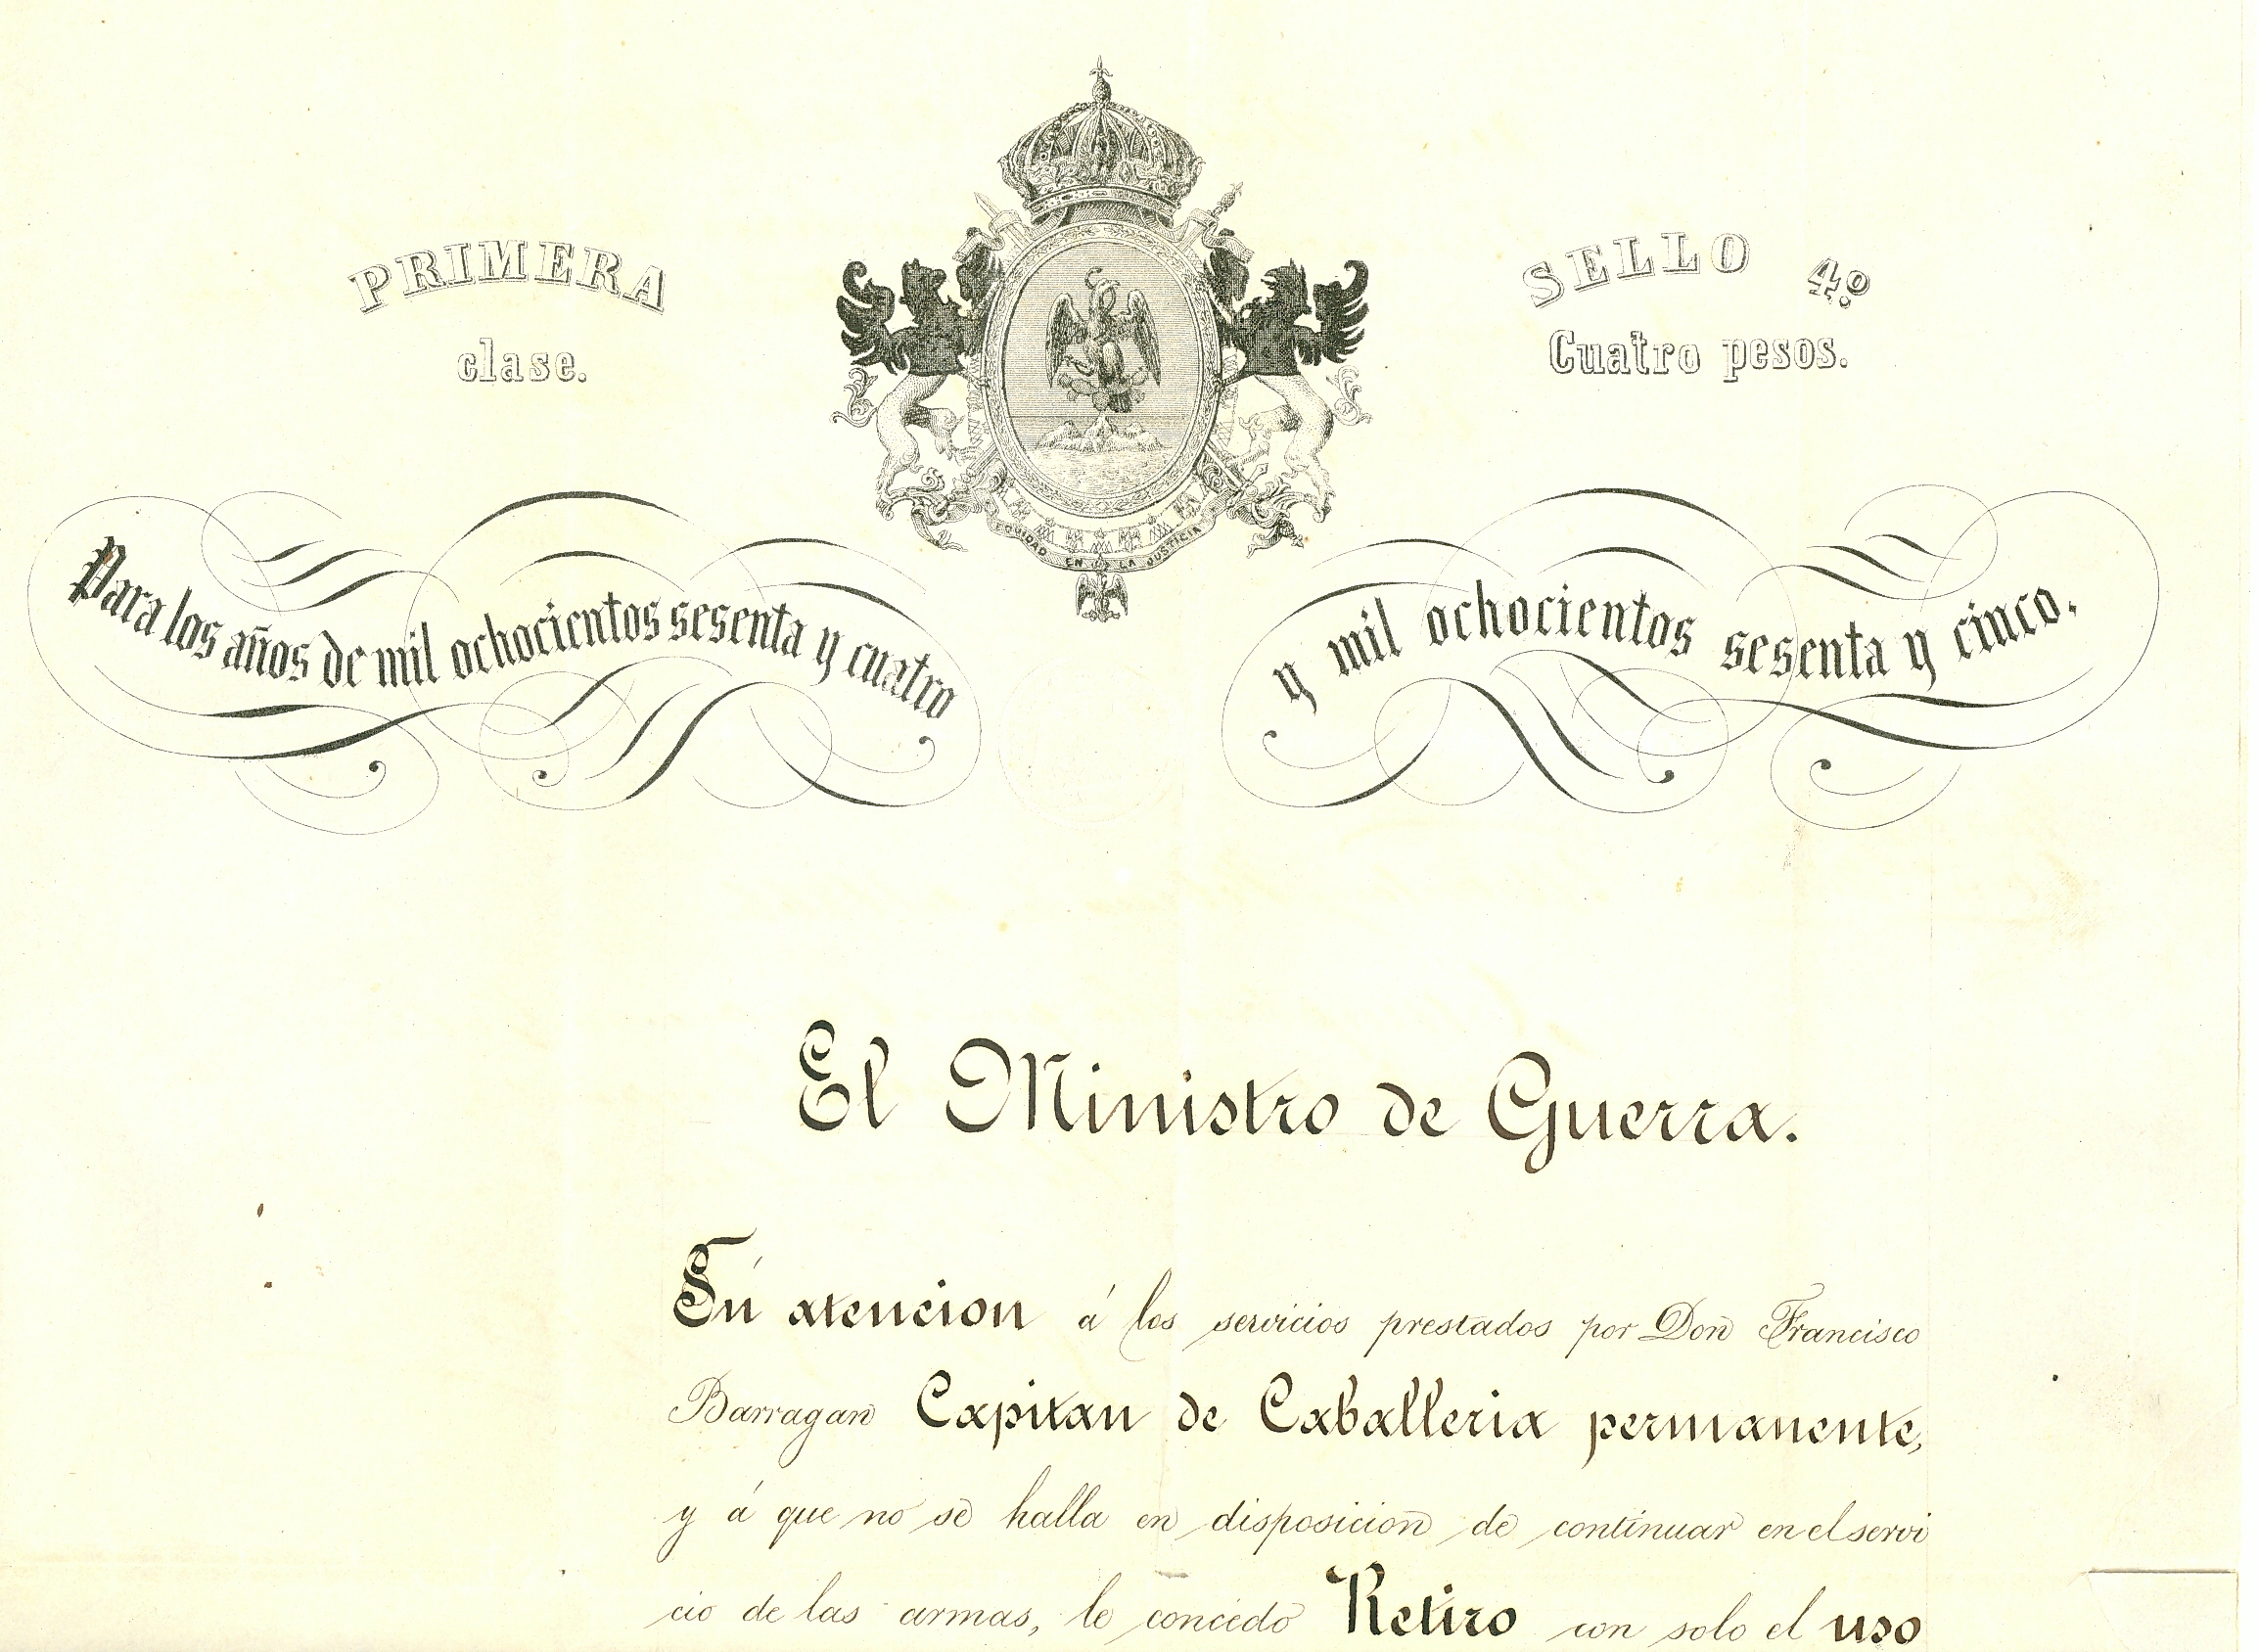 PRIMERA
clase.
SELLO 4º
Cuatro pesos.
EQUIDAD EN LA JUSTICIA
Para los años de mil ochocientos sesenta y cuatro
y mil ochocientos sesenta y cinco.
El Ministro de Guerra.
En atencion á los servicios prestados por Don Francisco
Barragan Capitan de Caballeria permanente,
y á que no se halla en disposicion de continuar en el servi
cio de las armas, le concedo Retiro con solo el uso